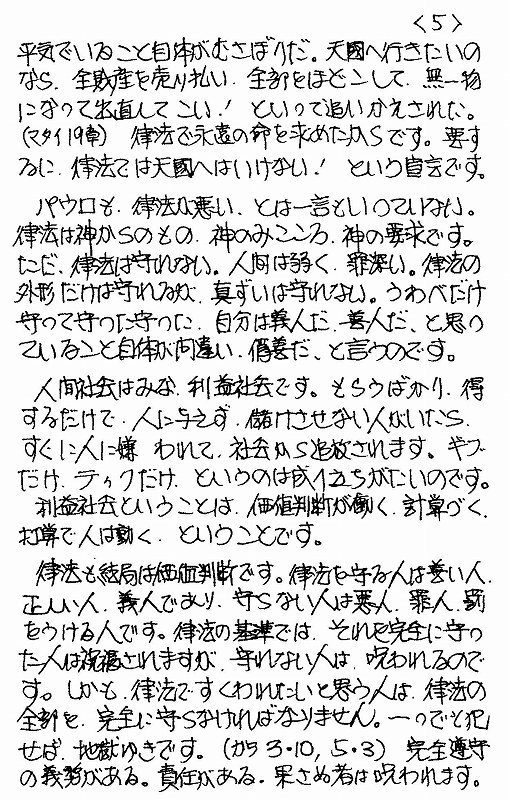 <5>
平気でいること自体がむさぼりだ。天國へ行きたいの
なら、全財産を売り払い、全部をほどこして、無一物
になって出直してこい！といって追いかえされた。
(マタイ19章) 律法で永遠の命を求めたからです。要す
るに、律法では天國へはいけない！という宣言です。
パウロも、律法が悪い、とは一言もいっていない。
律法は神からのもの、神のみこころ、神の要求です。
ただ、律法は守れない。人間は弱く、罪深い。律法の
外形だけは守れるが、真ずいは守れない。うわべだけ
守って守った守った、自分は義人だ、善人だ、と思っ
ていること自体が間違い、偽善だ、と言うのです。
人間社会はみな、利益社会です。もらうばかり、得
するだけで、人に与えず、儲けさせない人がいたら、
すぐに人に嫌われて、社会から追放されます。ギブ
だけ、テイクだけ、というのは成り立ちがたいのです。
利益社会ということは、価値判断が働く、計算づく、
打算で人は動く、ということです。
律法も結局は価値判断です。律法を守る人は善い人、
正しい人、義人であり、守らない人は悪人、罪人、罰
をうける人です。律法の基準では、それを完全に守っ
た人は祝福されますが、守れない人は、呪われるので
す。しかも、律法ですくわれたいと思う人は、律法の
全部を、完全に守らなければなりません。一つでも犯
せば、地獄ゆきです。(ガラ3・10, 5・3) 完全遵守
の義務がある。責任がある。果さぬ者は呪われます。